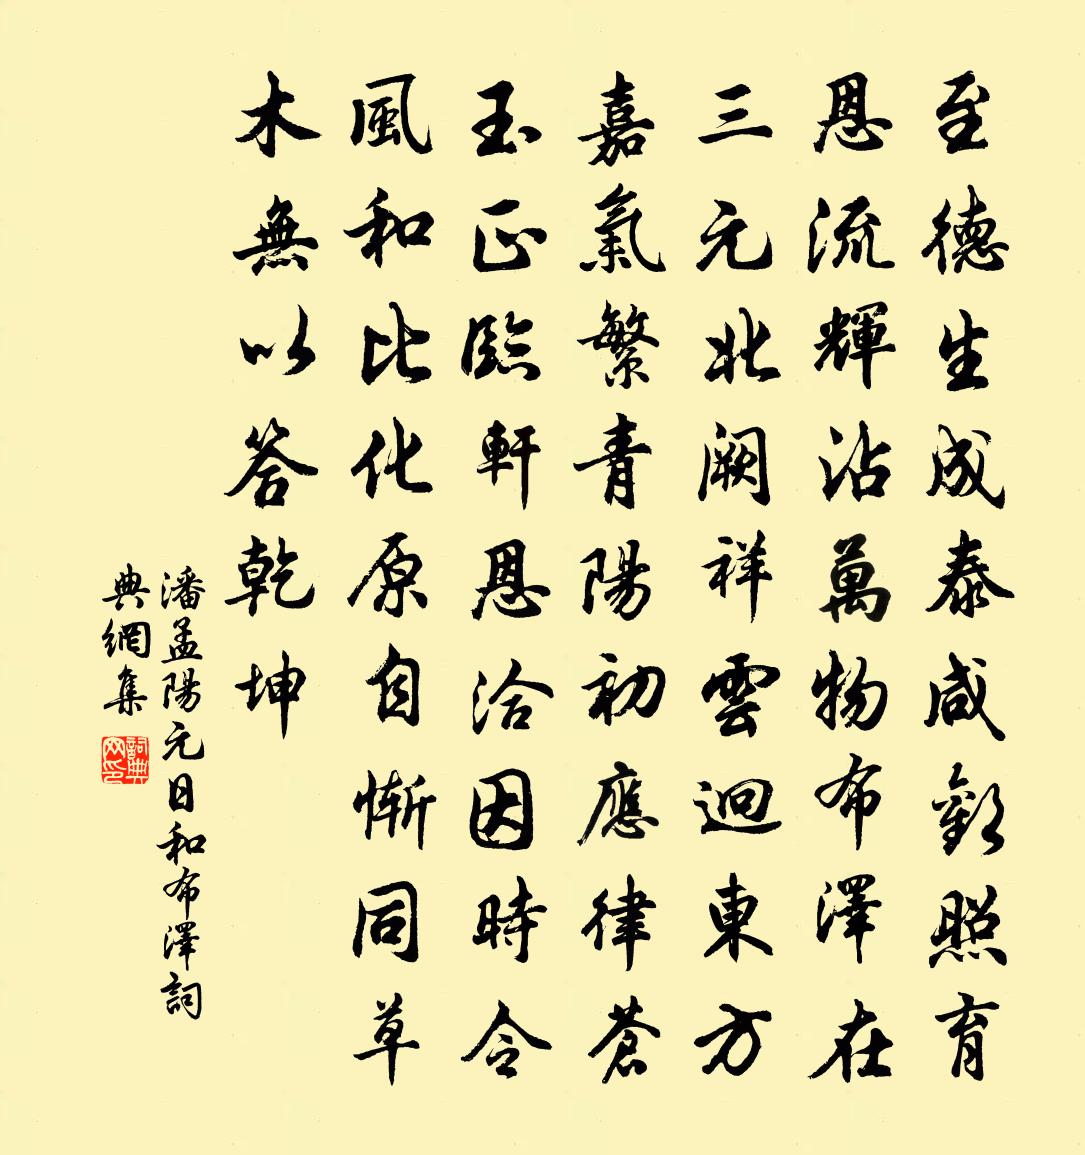 至德生成泰咸歡照育
恩流輝沾萬物布澤在
三元北闕祥雲迥東方
嘉氣繁青陽初應律蒼
玉正臨軒恩洽因時令
風和比化原自慚同草
木無以答乾坤
潘孟陽元日和布澤詞
典網集
詞典網印